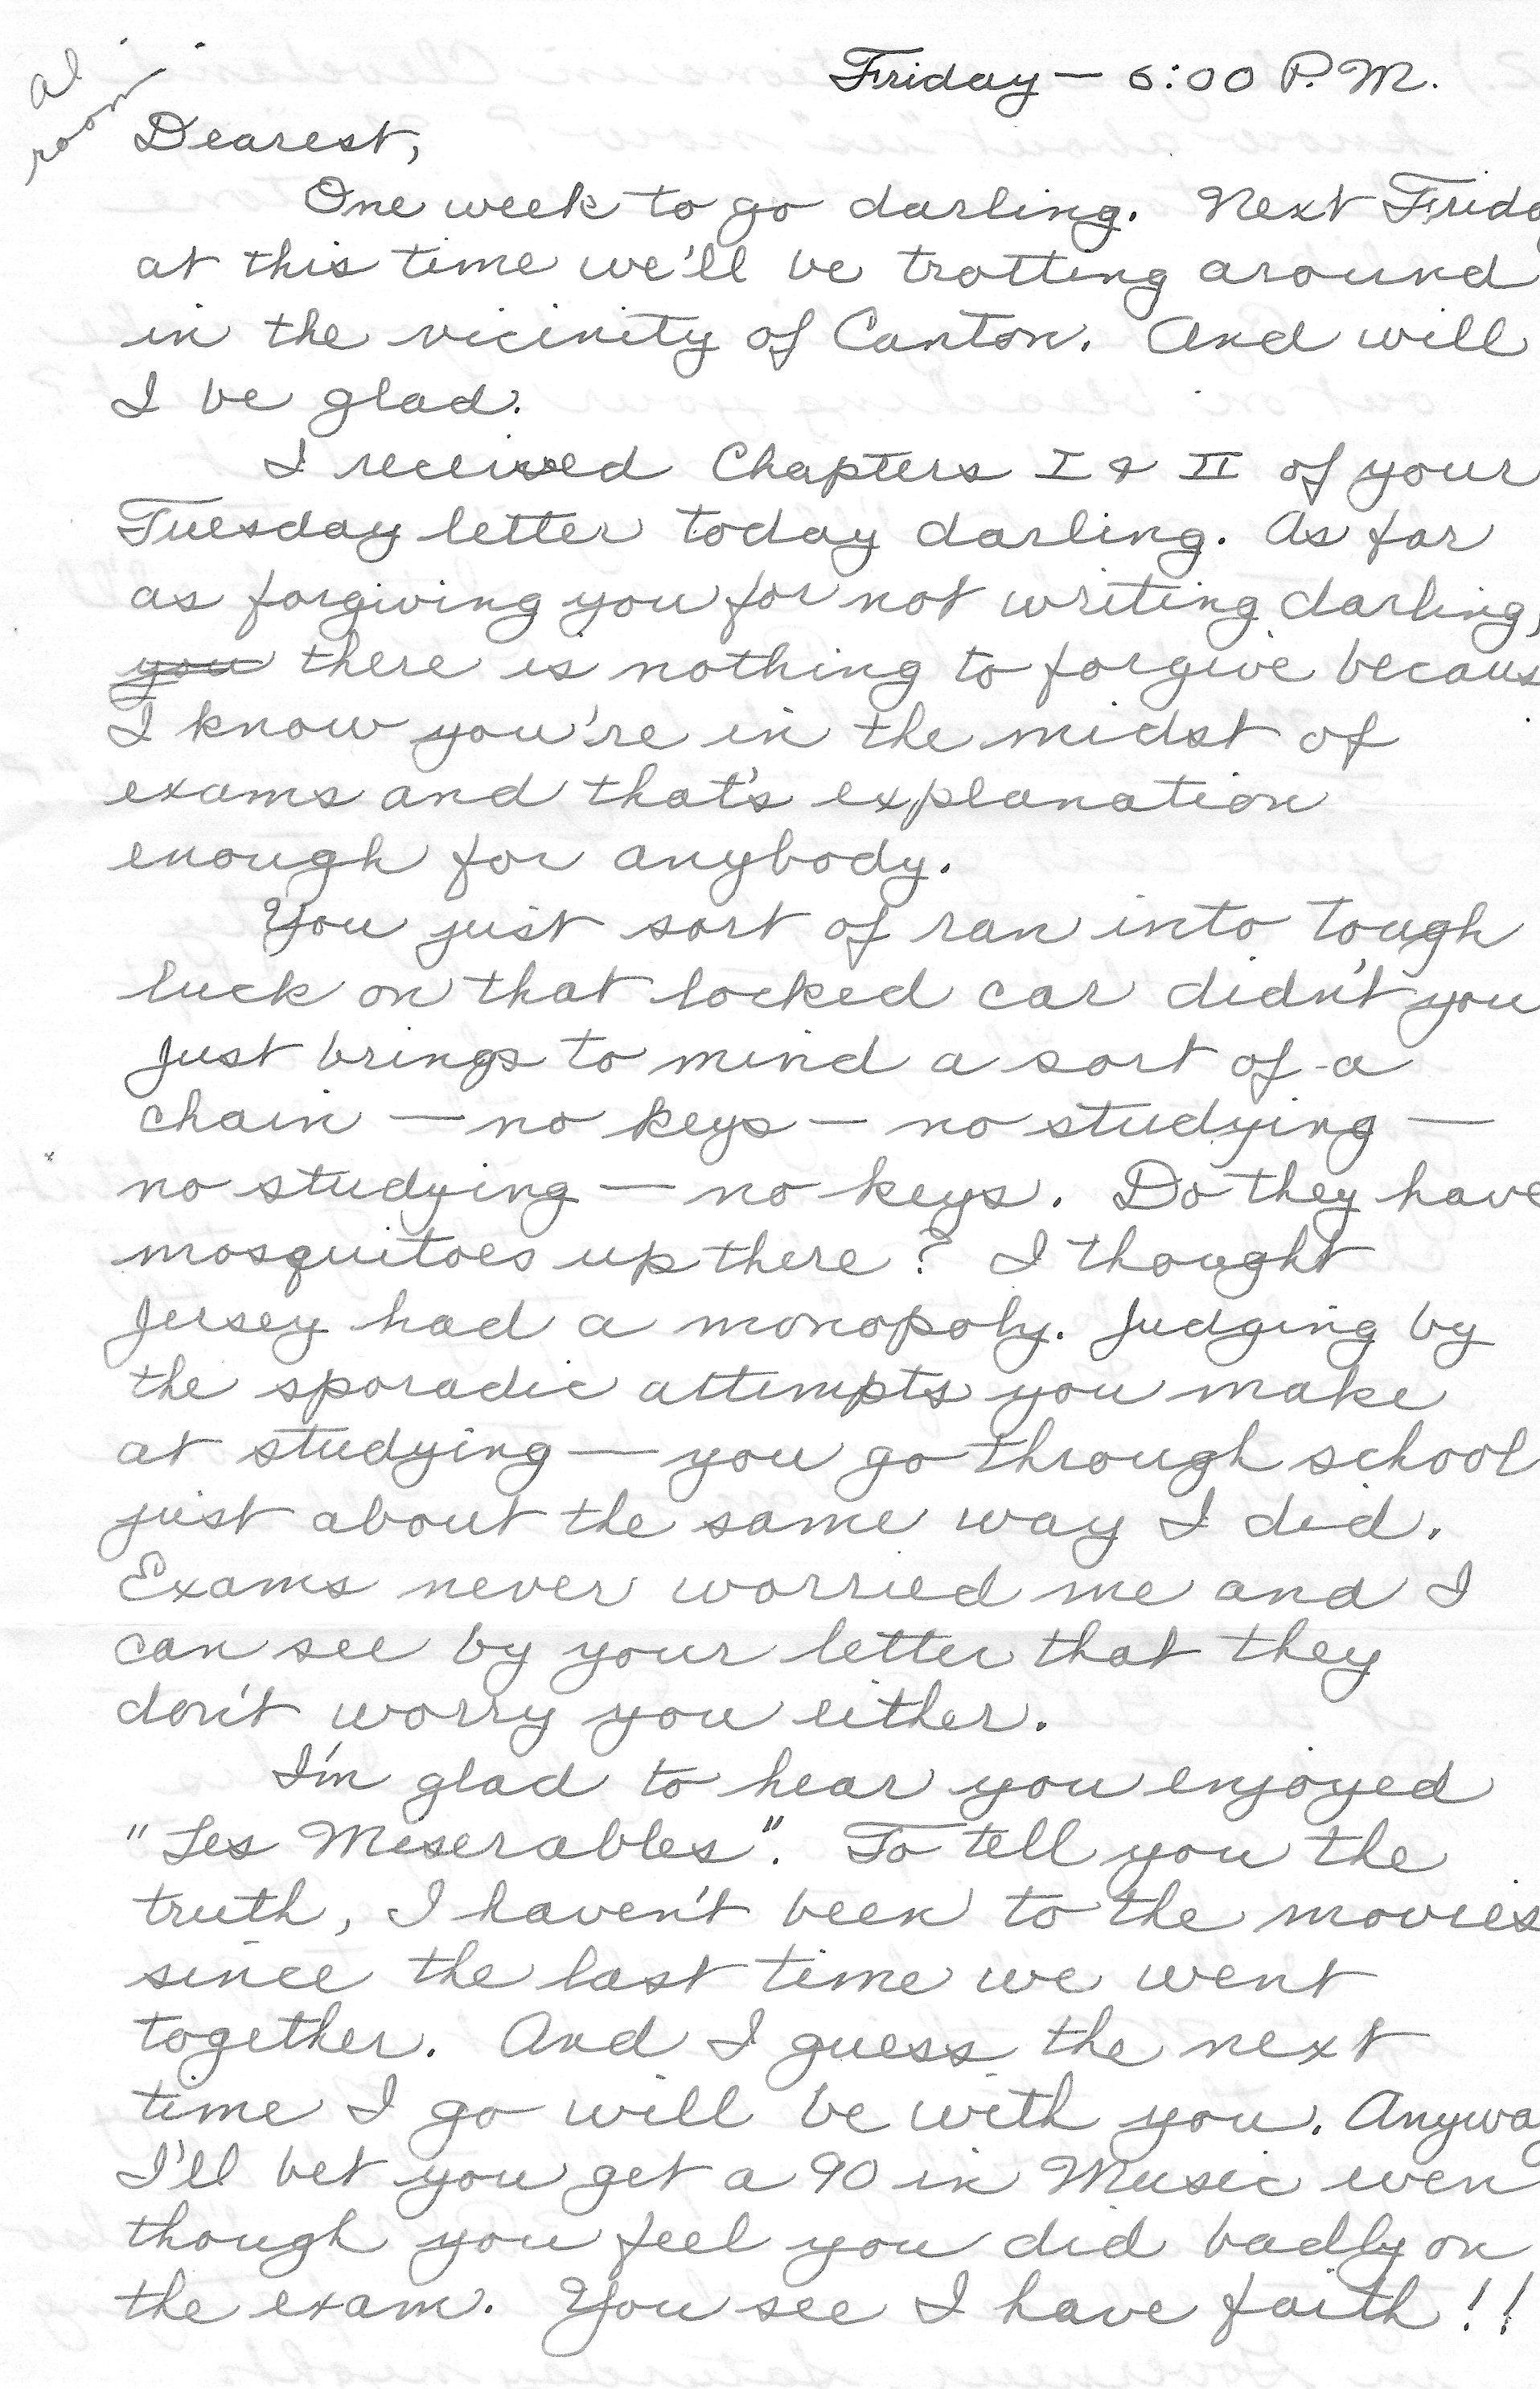 al
room
Friday — 6:00 P.M.
Dearest,
One week to go darling. Next Frida
at this time we'll be trotting around
in the vicinity of Canton. And will
I be glad.
I received Chapters I & II of your
Tuesday letter today darling. As far
as forgiving you for not writing darling,
you there is nothing to forgive becaus
I know you're in the midst of
exams and that's explanation
enough for anybody.
You just sort of ran into tough
luck on that locked car didn't you
Just brings to mind a sort of a
chain — no keys — no studying —
no studying — no keys. Do they have
mosquitoes up there? I thought
Jersey had a monopoly. Judging by
the sporadic attempts you make
at studying — you go through school
just about the same way I did.
Exams never worried me and I
can see by your letter that they
don't worry you either.
I'm glad to hear you enjoyed
"Les Miserables". To tell you the
truth, I haven't been to the movies
since the last time we went
together. And I guess the next
time I go will be with you. Anyway
I'll bet you get a 90 in Music even
though you feel you did badly on
the exam. You see I have faith!!